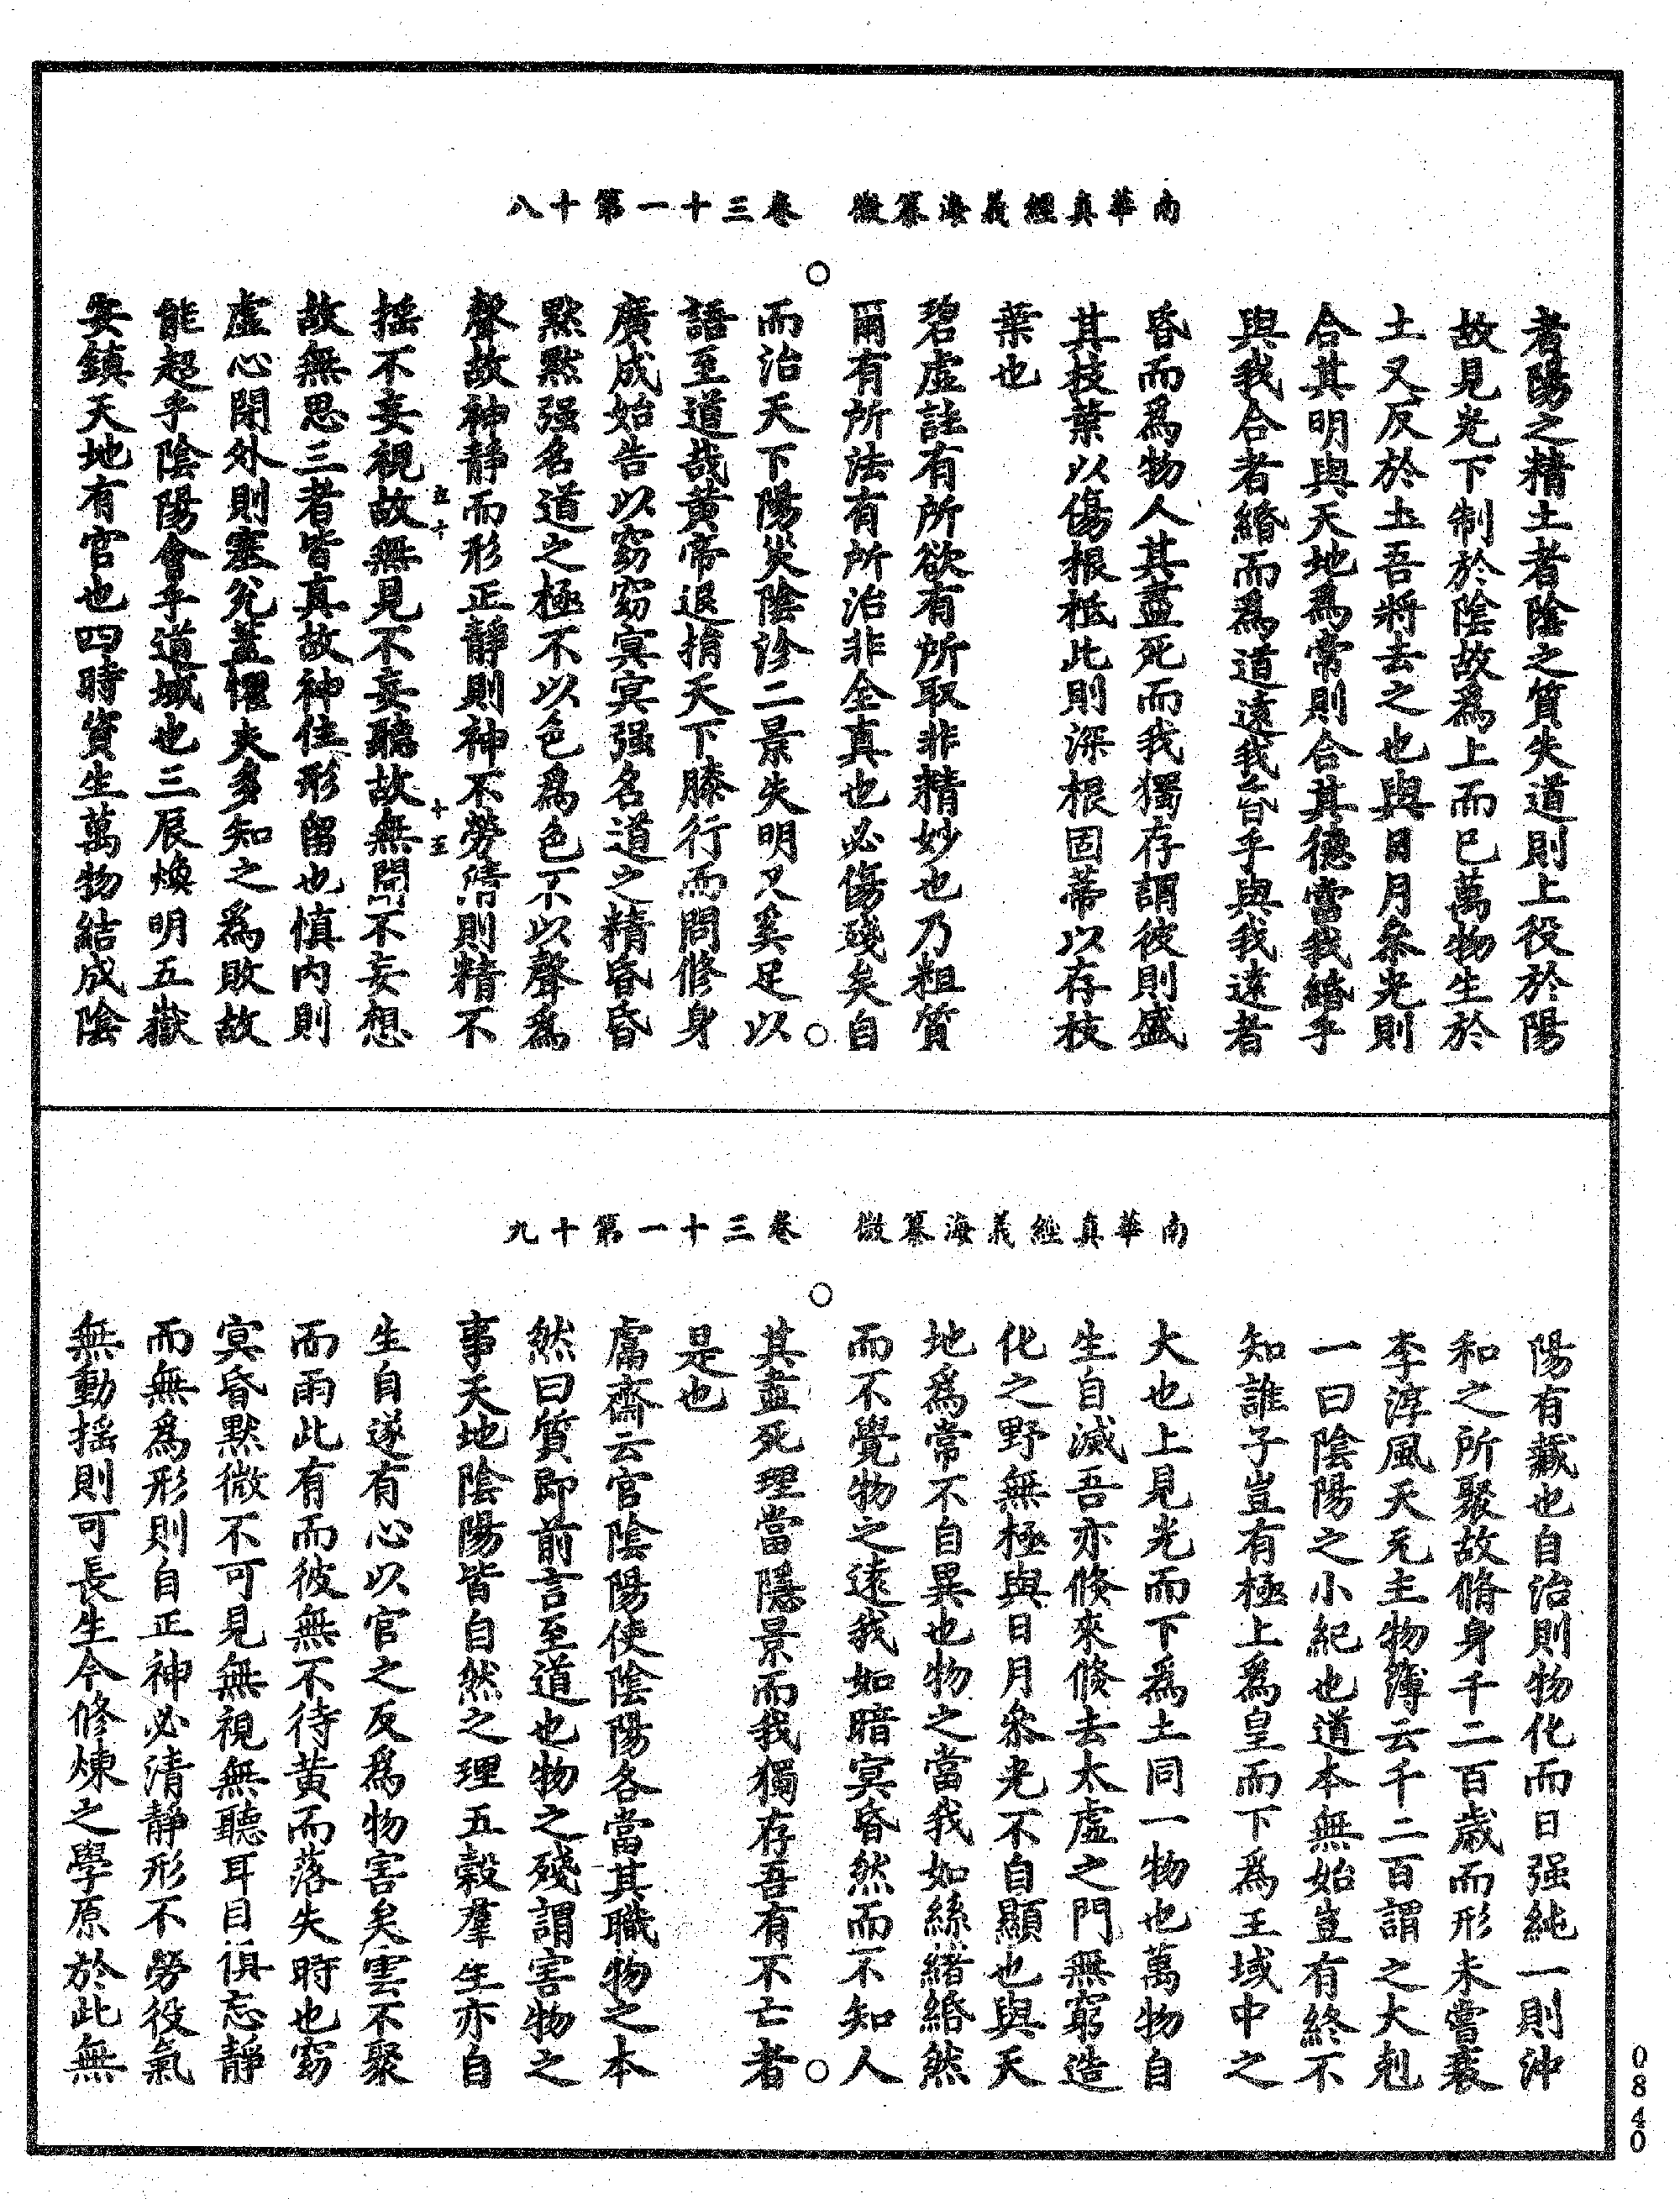 南華真經義海纂微　卷三十一第十八
者陽之精土者陰之質失道則上役於陽
故見光下制於陰故為上而已萬物生於
土又反於土吾將去之也與日月叅光則
合其明與天地為常則合其德當我緡乎
與我合者緡而為道遠我昏乎與我遠者
昏而為物人其盡死而我獨存謂彼則盛
其枝葉以傷根柢此則深根固蒂以存枝
葉也
碧虛註有所欲有所取非精妙也乃粗質
爾有所法有所治非全真也必傷殘矣自
而治天下陽災陰沴二景失明又奚足以
語至道哉黃帝退捐天下膝行而問修身
廣成始告以窈窈冥冥强名道之精昏昏
默默强名道之極不以色為色不以聲為
聲故神靜而形正靜則神不勞清則精不
搖不妄視故無見不妄聽故無聞不妄想
故無思三者皆真故神住形留也慎內則
虛心閉外則塞兌蓋懼夫多知之為敗故
能超乎陰陽會乎道域也三辰煥明五嶽
安鎮天地有官也四時資生萬物結成陰
五十
十五
南華真經義海纂微　卷三十一第十九
陽有藏也自治則物化而日强純一則沖
和之所聚故脩身千二百歲而形未嘗衰
李淳風天元主物簿云千二百謂之大剋
一曰陰陽之小紀也道本無始豈有終不
知誰子豈有極上為皇而下為王域中之
大也上見光而下為土同一物也萬物自
生自滅吾亦倐來倐去太虛之門無窮造
化之野無極與日月叅光不自顯也與天
地為常不自異也物之當我如絲緒緡然
而不覺物之遠我如暗冥昏然而不知人
其盡死理當隱景而我獨存吾有不亡者
是也
鬳齋云官陰陽使陰陽各當其職物之本
然曰質即前言至道也物之殘謂害物之
事天地陰陽皆自然之理五穀羣生亦自
生自遂有心以官之反為物害矣雲不聚
而雨此有而彼無不待黃而落失時也窈
冥昏默微不可見無視無聽耳目俱忘靜
而無為形則自正神必清靜形不勞役氣
無動搖則可長生今修煉之學原於此無
0840